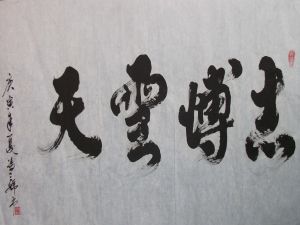 志博雲天
庚寅年夏